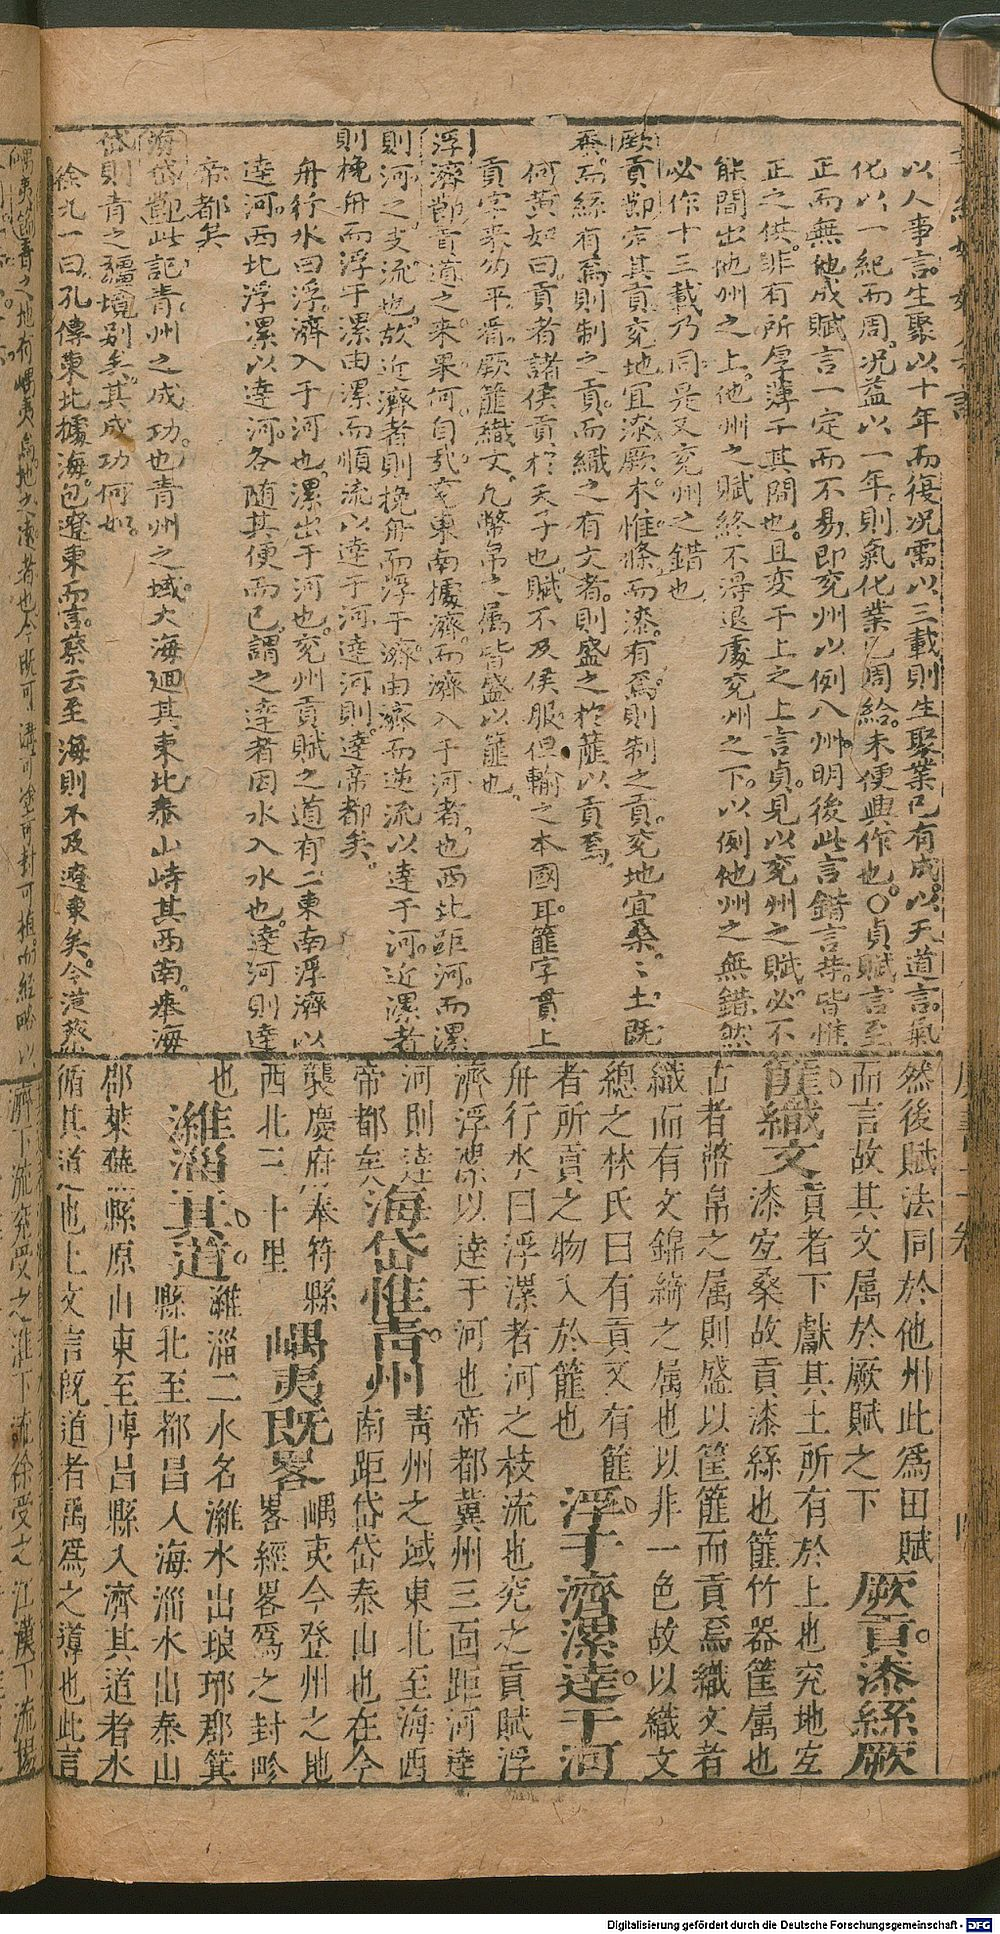 以人事言生聚以十年而復况需以三載則生聚業已有成以天道言氣
化以一紀而周况益以一年則氣化業已周給未便興作也○貞賦言至
正而無他成賦言一定而不易即兖州以例八州明後此言錯言荐皆惟
正之供非有所厚薄于其間也且变于上之上言貞見以兖州之賦必不
能間出他州之上他州之賦終不得退處兖州之下以例他州之無錯然
必作十三載乃同是又兖州之錯也
厥貢節定其貢兖地宜漆厥木惟條而漆有焉則制之貢兖地宜桑土既
蚕而絲有焉則制之貢而織之有文者則盛之於篚以貢焉
何黄如曰貢者諸侯貢於天子也賦不及侯服但輸之本國耳篚字貫上
貢字來勿平看厥篚織文凡幣帛之属皆盛以篚也
浮濟節貢道之来果何自哉兖東南據濟而濟入于河者也西北距河而漯
則河之支流也故近濟者則挽舟而浮于濟由濟而逆流以達于河近漯者
則挽舟而浮于漯由漯而順流以達于河達河則達帝都矣
舟行水曰浮濟入于河也漯出于河也兖州貢賦之道有二東南浮濟以
達河西北浮漯以達河各随其便而已謂之達者因水入水也達河則達
帝都矣
海岱節此記青州之成功也青州之域大海迴其東北泰山峙其西南海
岱則青之疆境别矣其成功何如
徐九一曰孔傳東北據海包遼東而言蔡云至海則不及遼東矣今從蔡
然後賦法同於他州此爲田賦
而言故其文属於厥賦之下 厥貢漆絲厥
篚織文 貢者下獻其土所有於上也兖地宜
漆宜桑故貢漆絲也篚竹器筐属也
古者幣帛之属則盛以筐篚而貢焉織文者
織而有文錦綺之属也以非一色故以織文
總之林氏曰有貢又有篚
者所貢之物入於篚也 浮于濟漯達于河
舟行水曰浮漯者河之枝流也兖之貢賦浮
濟浮漯以達于河也帝都冀州三面距河達
河則達
帝都矣 海岱惟青州 青州之域東北至海西
南距岱岱泰山也在今
襲慶府奉符縣
西北三十里 嵎夷既畧 嵎夷今登州之地
畧經畧爲之封畛
也 濰淄其道 濰淄二水名濰水出琅琊郡箕
縣北至都昌入海淄水出泰山
郡莱蕪縣原山東至博昌縣入濟其道者水
循其道也上文言既道者禹爲之導也此言
Digitalisierung gefördert durch die Deutsche Forschungsgemeinschaft - DFG